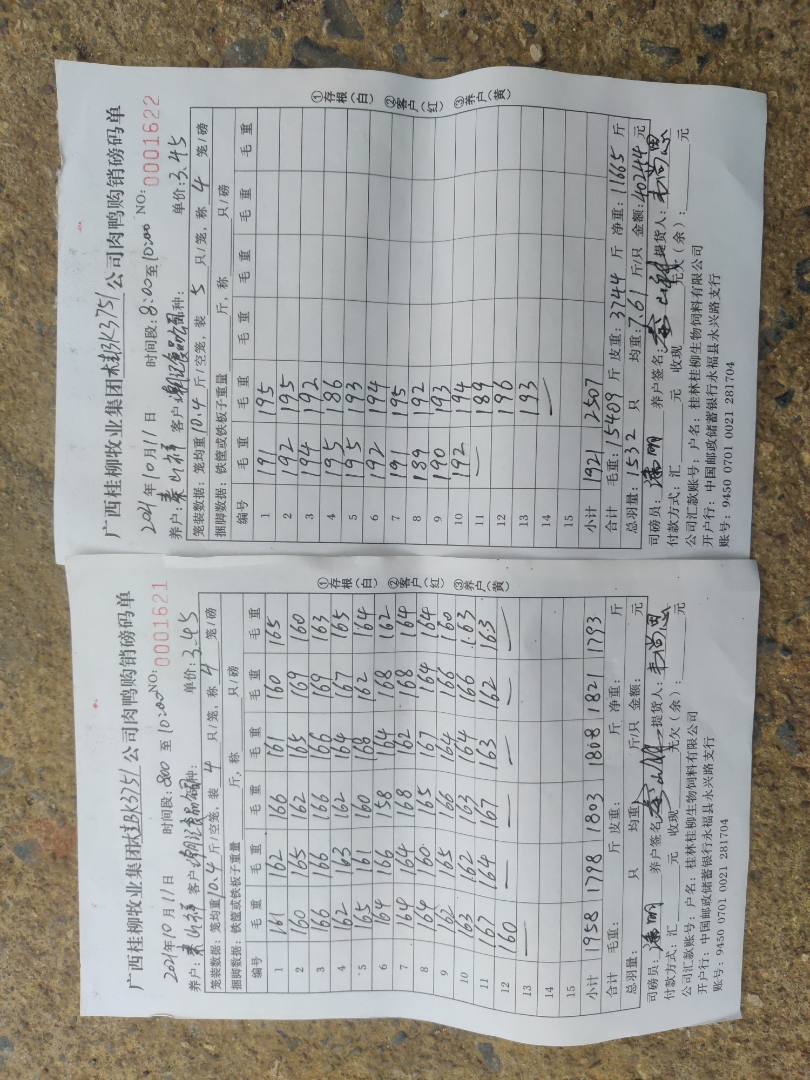 广西桂柳牧业集团桂BK3751公司肉鸭购销磅码单
2021年10月11日 时间段:8:00至10:00 NO: 0001621
养户:秦山祥 客户: 种: 单价:3.45
笼装数据:笼均重10.4斤/空笼,装 4 只/笼,称 4 笼/磅
捆脚数据:铁筐或铁板子重量 斤,称 只/磅
编号 毛重 毛重 毛重 毛重 毛重 毛重
1 161 162 166 161 160 165
2 160 165 162 165 169 160
3 166 166 166 166 169 163
4 162 163 162 164 167 165
5 165 161 160 168 162 164
6 164 166 158 164 168 162
7 164 164 168 162 168 164
8 164 160 165 167 164 164
9 162 165 166 164 166 160
10 163 162 163 164 166 163
11 167 164 167 163 162 163
12 160 — — — — —
13 —
14
15
小计 1958 1798 1803 1808 1821 1793
合计 毛重: 斤 皮重: 斤 净重: 斤
总羽量: 只 均重: 斤/只 金额: 元
司磅员: 养户签名: 提货人:韦尚恩
付款方式:汇 元 收现 元欠(余): 元
公司汇款账号:户名:桂林桂柳生物饲料有限公司
开户行:中国邮政储蓄银行永福县永兴路支行
账号:9450 0701 0021 281704
①存根(白) ②客户(红) ③养户(黄)
广西桂柳牧业集团桂BK3751公司肉鸭购销磅码单
2021年10月11日 时间段:8:00至10:00 NO: 0001622
养户:秦山祥 客户: 种: 单价:3.45
笼装数据:笼均重10.4斤/空笼,装 5 只/笼,称 4 笼/磅
捆脚数据:铁筐或铁板子重量 斤,称 只/磅
编号 毛重 毛重 毛重 毛重 毛重 毛重
1 191 195
2 192 195
3 194 192
4 195 186
5 195 193
6 192 194
7 191 195
8 189 192
9 190 193
10 192 194
11 — 189
12 196
13 193
14 —
15
小计 1921 2507
合计 毛重:15409斤 皮重:3744斤 净重:11665斤
总羽量:1532 只 均重:7.61斤/只 金额:40244元
司磅员: 养户签名: 提货人:韦尚恩
付款方式:汇 元 收现 元欠(余): 元
公司汇款账号:户名:桂林桂柳生物饲料有限公司
开户行:中国邮政储蓄银行永福县永兴路支行
账号:9450 0701 0021 281704
①存根(白) ②客户(红) ③养户(黄)